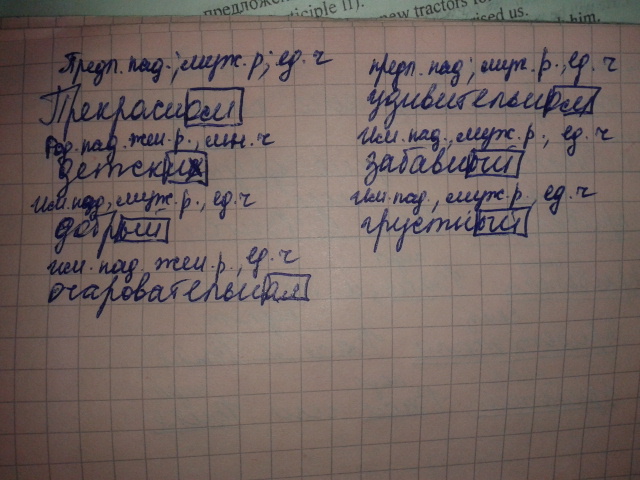 предложе
ticiple II).
new tractors fo
ised us.
him.
Предл. пад., муж. р., ед. ч
Прекрасном
Род. пад. жен. р., мн. ч
детских
Им. пад., муж. р., ед. ч
добрый
им. пад. жен. р., ед. ч
очаровательная
предл. пад., муж. р., ед. ч
удивительном
Им. пад., муж. р., ед. ч
забавный
Им. пад., муж. р., ед. ч
грустный